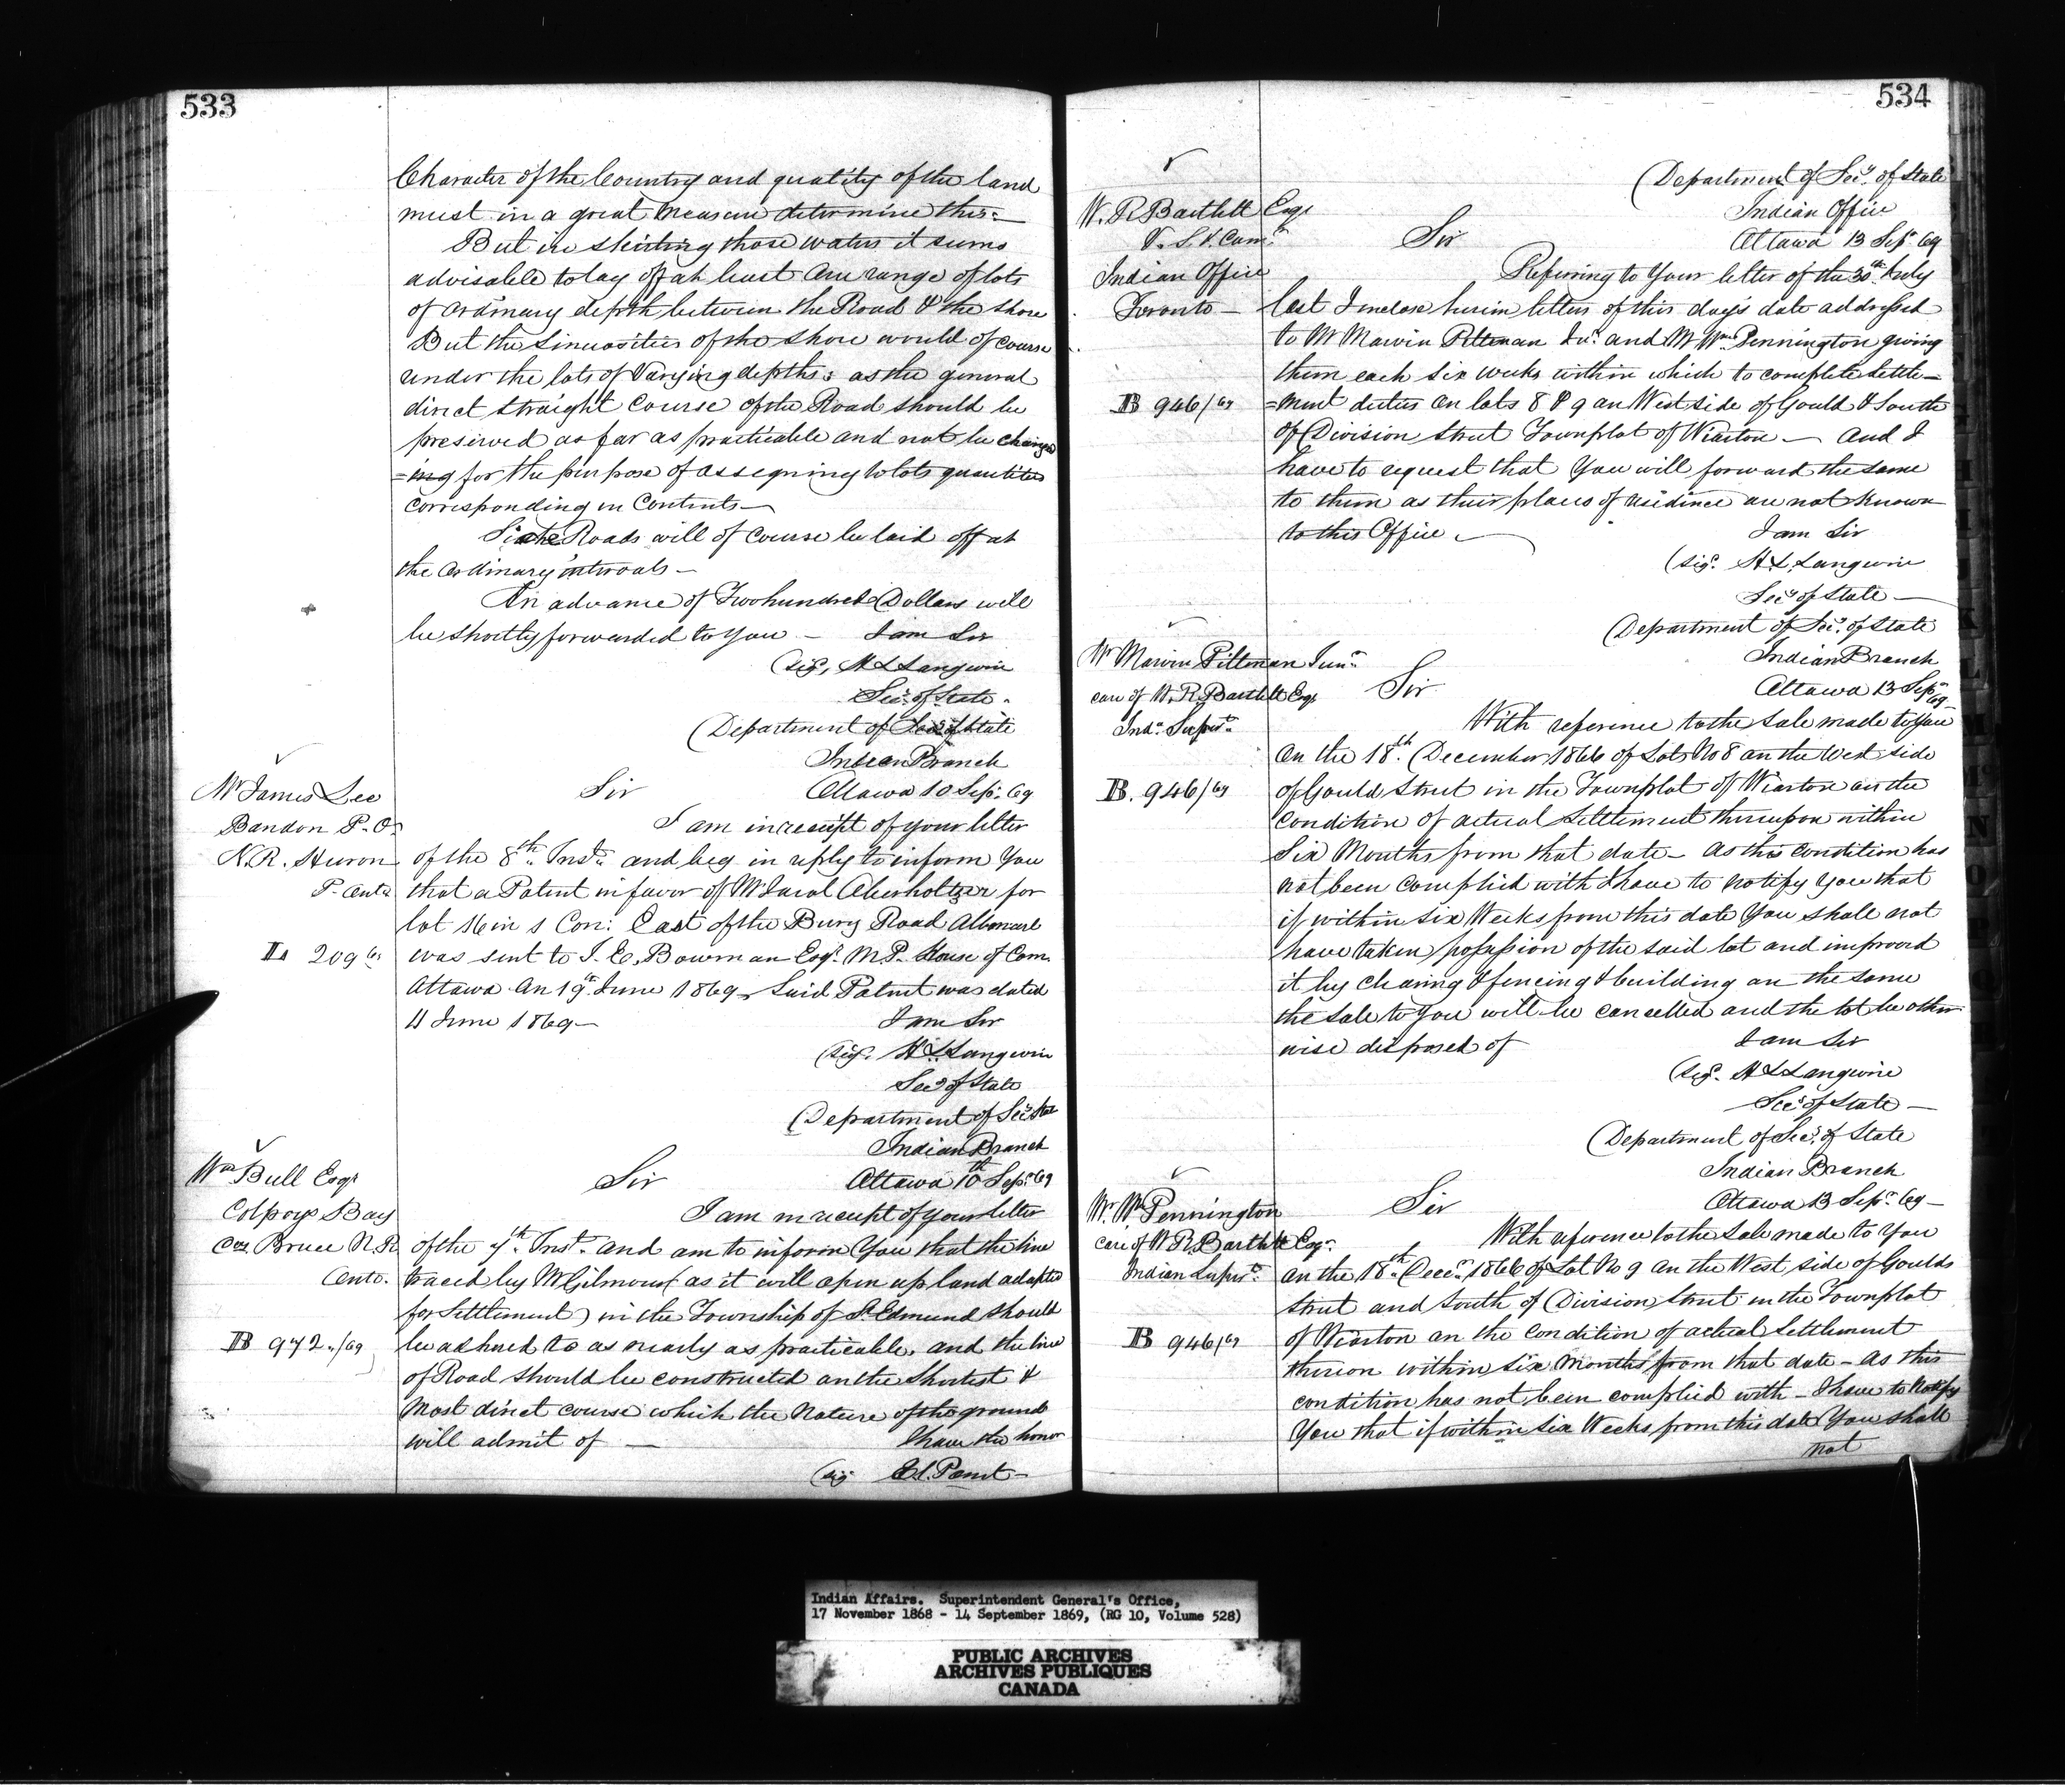 533
Character of the Country and quality of the land
must in a great measure determine this.
But in skirting those waters it seems
advisable to lay off at least one range of lots
of ordinary depth between the Road & the shore
But the sinuosities of the shore would of course
render the lots of varying depths: as the general
direct straight course of the Road should be
preserved as far as practicable and not be chang
=ing for the purpose of assigning to lots quantities
corresponding in contents—
Side Roads will of course be laid off at
the ordinary intervals—
An advance of Two hundred Dollars will
be shortly forwarded to you — I am Sir
(sigd. H L Langevin
Secy. of State.
Department of Secy of State
Indian Branch
Mr James Lee
Sir
Ottawa 10 Sepr. 69
Bandon P.O.
I am in receipt of your letter
N.R. Huron
of the 8th Inst. and beg in reply to inform you
P. Onto
that a Patent in favor of Mr Jacob Oberholtzer for
lot 16 in 1 Con: East of the Bury Road Albemarl
L 209/69
was sent to I. E. Bowman Esqr. M.P. House of Com.
Ottawa on 19th June 1869. Said Patent was dated
11 June 1869—
I am Sir
(sigd. H L Langevin
Secy of State
Department of Secy State
Indian Branch
Wm Bull Esqr
Sir
Ottawa 10th Sepr. 69
Colpoys Bay
I am in receipt of your letter
Coy. Bruce N.R.
of the 7th Inst. and am to inform you that the line
Onto.
traced by Mr Gilmour (as it will open up land adapted
for settlement) in the Township of St. Edmund should
B 972./69
be adhered to as nearly as practicable. and the line
of Road should be constructed on the shortest &
most direct course which the nature of the ground
will admit of —
I have the honor
(sig
534
Department of Secy. of State
W. R Bartlett Esqr
Indian Office
V. S. I. Com.
Sir
Ottawa 13 Sepr. 69
Indian Office
Referring to your letter of the 30th July
Toronto—
last I enclose herein letters of this day's date addressed
to Mr Marvin Pittman Junr. and Mr Wm Pennington giving
them each six weeks within which to complete settle—
B 946/69
=ment duties on lots 8 & 9 on West side of Gould & South
of Division Street Townplot of Wiarton — and I
have to request that you will forward the same
to them as their places of residence are not known
to this Office.
I am Sir
(sigd. H. L. Langevin
Secy of State—
Department of Secy. of State
Mr Marvin Pittman Junr.
Indian Branch
care of W. R. Bartlett Esqr
Sir
Ottawa 13 Sepr. 69
Ind. Supert.
With reference to the sale made to you
on the 18th. December 1866 of Lot No 8 on the West side
B. 946/69
of Gould Street in the Townplot of Wiarton on the
condition of actual settlement thereupon within
six months from that date— As this condition has
not been complied with I have to notify you that
if within six weeks from this date you shall not
have taken possession of the said lot and improved
it by clearing & fencing & building on the same
the sale to you will be cancelled and the lot be other
wise disposed of
I am Sir
(sigd. H L Langevin
Secy of State—
Department of Secy. of State
Indian Branch
Mr. Wm Pennington
Sir
Ottawa 13 Sepr. 69—
care of W R Bartlett Esqr.
With reference to the sale made to you
Indian Supert.
on the 18th. Decr. 1866 of Lot No 9 on the West side of Goulds
Street and South of Division Street in the Townplot
B 946/69
of Wiarton on the condition of actual settlement
thereon within six months from that date— As this
condition has not been complied with— I have to notify
you that if within six weeks from this date you shall
not
Indian Affairs. Superintendent General's Office,
17 November 1868 - 14 September 1869, (RG 10, Volume 528)
PUBLIC ARCHIVES
ARCHIVES PUBLIQUES
CANADA